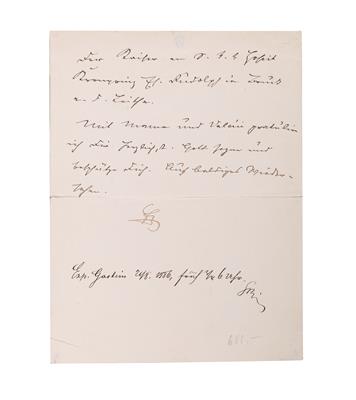 Der Kaiser an S. k. k. Hoheit
Kronprinz Eh. Rudolph in Bruck
a. d. Leitha.
Mit Mama und Valérie gratulire
ich Dir herzlichst. Gott segne und
beschütze Dich. Auf baldiges Wieder-
sehen.
Exp. Gastein 21/8. 1886, früh 6 Uhr.